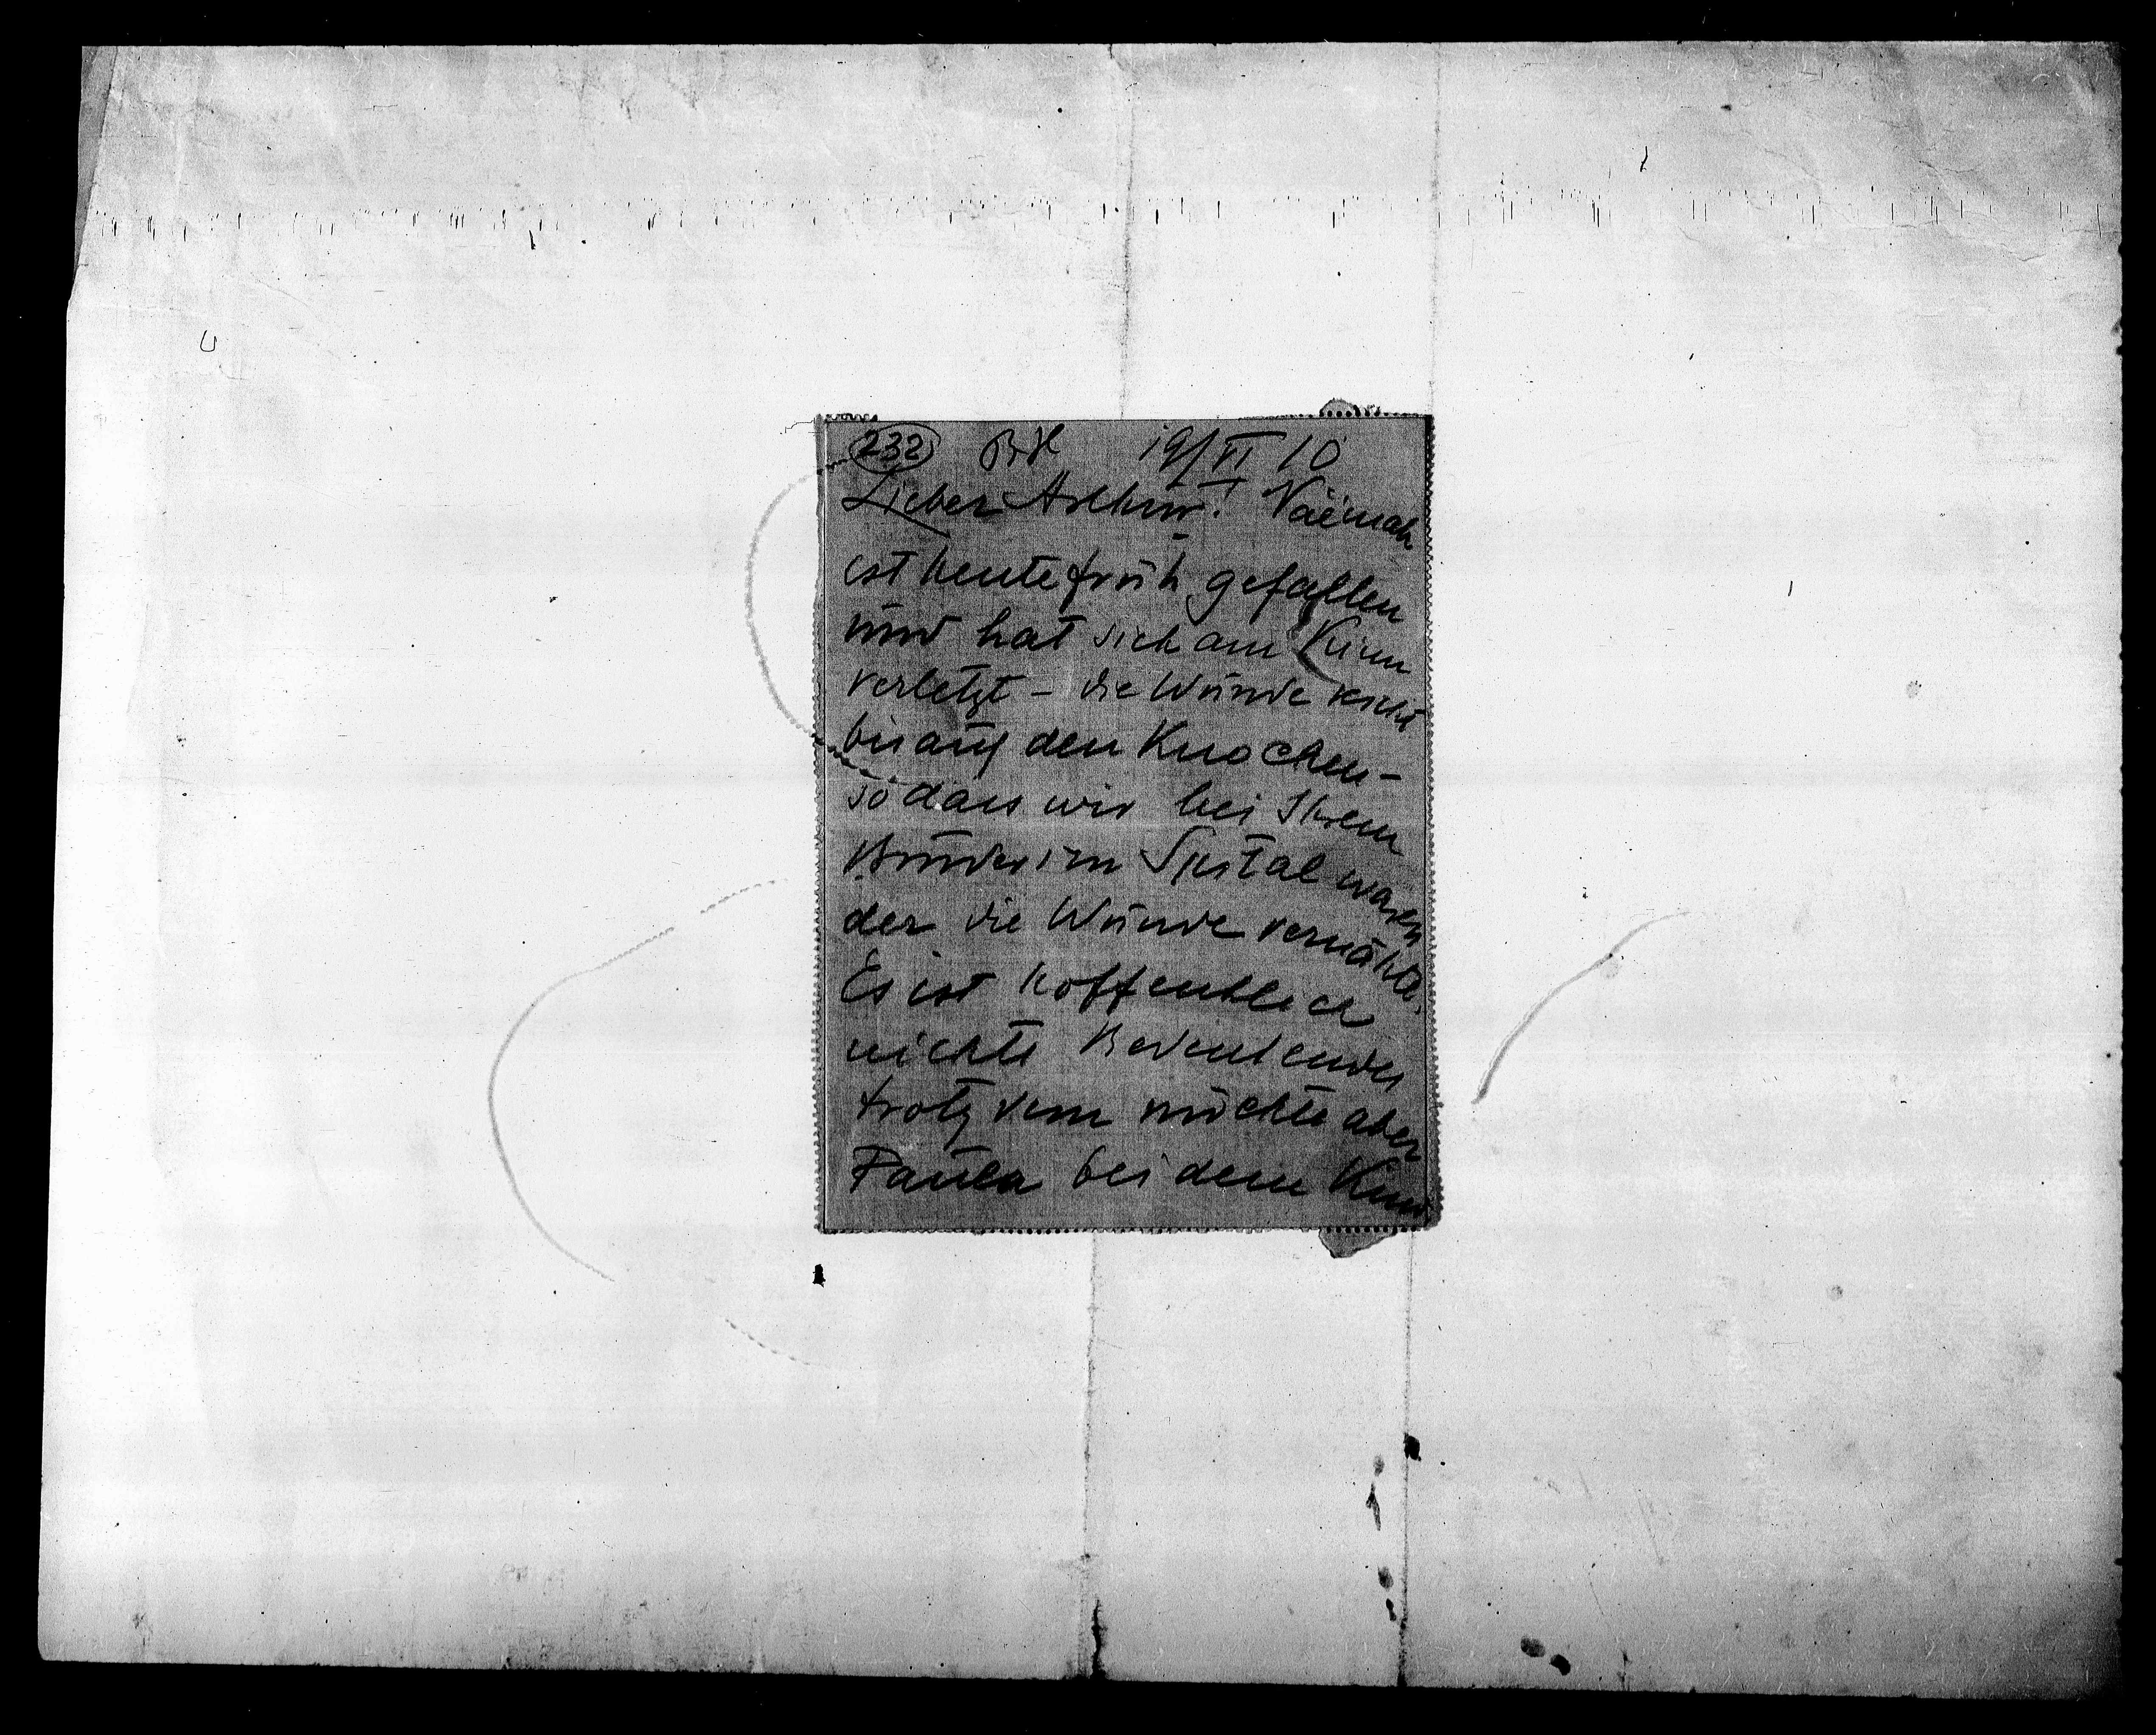 232 BH 19/VI 10
Lieber Arthur! Naëmah
ist heute früh gefallen
und hat sich am Kinn
verletzt – die Wunde reicht
bis auf den Knochen –
so dass wir bei Ihrem
Bruder im Spital waren
der die Wunde vernähte.
Es ist hoffentlich
nichts Bedeutendes
trotzdem möchte aber
Paula bei dem Kind